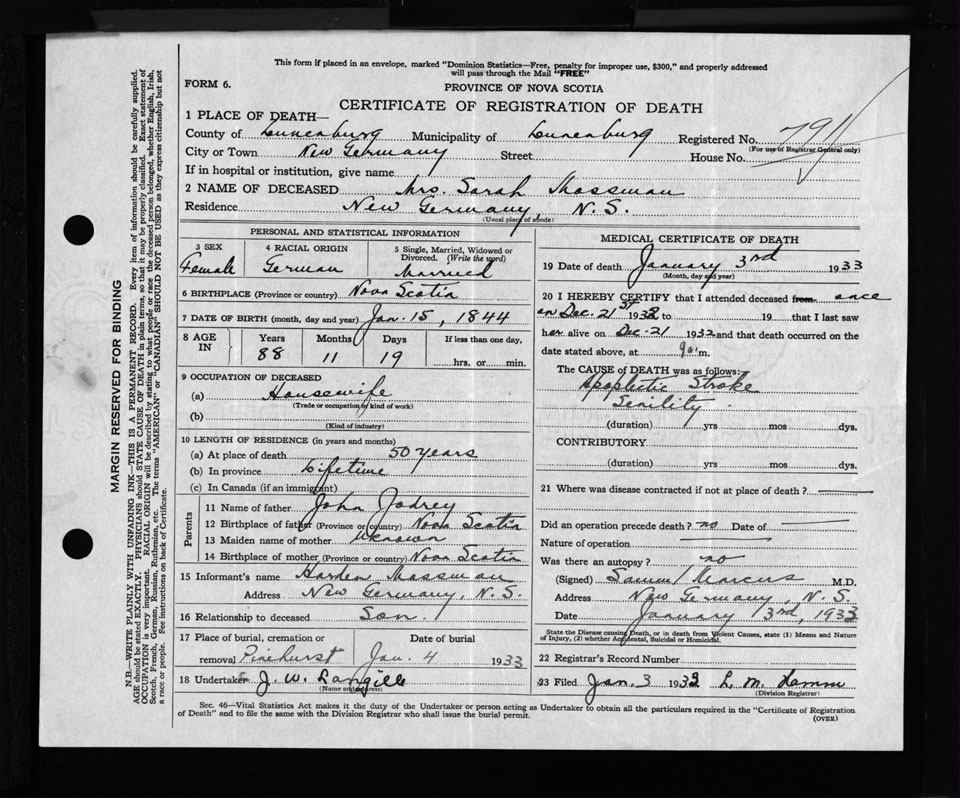 This form if placed in an envelope, marked "Dominion Statistics—Free, penalty for improper use, $300," and properly addressed
will pass through the Mail "FREE"
FORM 6.
PROVINCE OF NOVA SCOTIA
CERTIFICATE OF REGISTRATION OF DEATH
1 PLACE OF DEATH—
County of Lunenburg Municipality of Lunenburg Registered No. 791
(For use of Registrar General only)
City or Town New Germany Street House No.
If in hospital or institution, give name
2 NAME OF DECEASED Mrs. Sarah Mossman
Residence New Germany, N.S.
(Usual place of abode)
PERSONAL AND STATISTICAL INFORMATION
3 SEX 4 RACIAL ORIGIN 5 Single, Married, Widowed or
Divorced. (Write the word)
Female German Married
6 BIRTHPLACE (Province or country) Nova Scotia
7 DATE OF BIRTH (month, day and year) Jan. 15, 1844
8 AGE IN Years Months Days If less than one day,
88 11 19 hrs. or min.
9 OCCUPATION OF DECEASED
(a) Housewife
(Trade or occupation, or kind of work)
(b)
(Kind of industry)
10 LENGTH OF RESIDENCE (in years and months)
(a) At place of death 50 years
(b) In province Lifetime
(c) In Canada (if an immigrant)
Parents
11 Name of father John Jodrey
12 Birthplace of father (Province or country) Nova Scotia
13 Maiden name of mother Unknown
14 Birthplace of mother (Province or country) Nova Scotia
15 Informant's name Mossman
Address New Germany, N.S.
16 Relationship to deceased Son.
17 Place of burial, cremation or Date of burial
removal Pinehurst Jan. 4 1933
18 Undertaker J. W. Langille
(Name and address)
MEDICAL CERTIFICATE OF DEATH
19 Date of death January 3rd 1933
(Month, day and year)
20 I HEREBY CERTIFY that I attended deceased from once
on Dec. 21st 1932 to 19 that I last saw
her alive on Dec. 21 1932 and that death occurred on the
date stated above, at 9 a.m.
The CAUSE of DEATH was as follows:
Apoplectic Stroke
Senility.
(duration) yrs mos dys.
CONTRIBUTORY
(duration) yrs mos dys.
21 Where was disease contracted if not at place of death?
Did an operation precede death? no Date of
Nature of operation
Was there an autopsy? no
(Signed) Marcus M.D.
Address New Germany, N.S.
Date January 3rd, 1933
State the Disease causing Death, or in death from Violent Causes, state (1) Means and Nature
of Injury, (2) whether Accidental, Suicidal or Homicidal.
22 Registrar's Record Number
23 Filed Jan. 3 1933 L. M.
(Division Registrar)
Sec. 46—Vital Statistics Act makes it the duty of the Undertaker or person acting as Undertaker to obtain all the particulars required in the "Certificate of Registration
of Death" and to file the same with the Division Registrar who shall issue the burial permit.
(OVER)
MARGIN RESERVED FOR BINDING
N.B.—WRITE PLAINLY WITH UNFADING INK—THIS IS A PERMANENT RECORD. Every item of information should be carefully supplied.
AGE should be stated EXACTLY. PHYSICIANS should STATE CAUSE OF DEATH in plain terms, so that it may be properly classified. Exact statement of
OCCUPATION is very important. RACIAL ORIGIN will be described by stating to what people or race the deceased person belonged, whether English, Irish,
Scotch, French, German, Russian, Ruthenian, etc. The terms "AMERICAN" or "CANADIAN" SHOULD NOT BE USED as they express citizenship but not
a race or people. See instructions on back of Certificate.